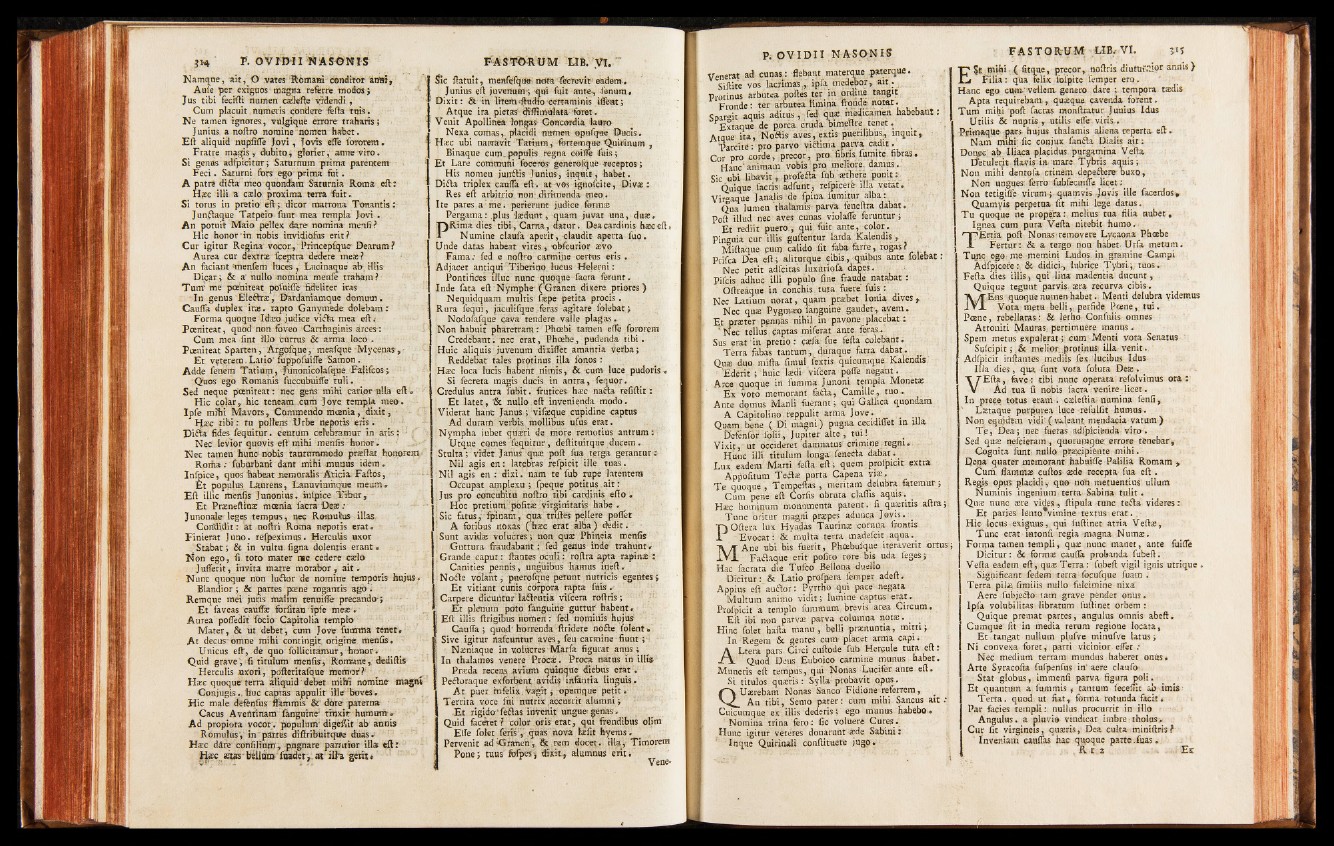 314 P. OVIDII NASONIS
Namque, ait, O vates Romani conditor anni,
Ause per exiguos magna referre modos;
Jus tibi fecisti numen cæleste videndi,
Cum placuit numeris condere festa tuis.
Ne tamen ignores, vulgique errore traharis;
Junius a nostro nomine nomen habet.
Est aliquid nupsisse Jovi, Jovis esse sororem.
Fratre magis, dubito, glorier, anne viro.
Si genus adspicitur; Saturnum prima parentem
Feci. Saturni sors ego prima fui.
A patre dicta meo quondam Saturnia Roma est:
Hæc illi a cælo proxima terra fuit.
Si torus in pretio est; dicor matrona Tonantis:
Junctaque Tarpeio sunt mea templa Jovi.
An potuit Maio pellex dare nomina mensi?
Hic honor in nobis invidiosus erit?
Cur igitur Regina vocor, Princepsque Dearum?
Aurea cur dextræ sceptra dedere meæ?
An faciant mensem luces, Lucinaque ab illis
Dicar; & a nullo nomina mense traham?
Tum me pœniteat posuisse fideliter iras
In genus Electræ, Dardaniamque domum.
Caussa duplex iræ. rapto Ganymede dolebam:
Forma quoque Idæo judice victa mea est.
Pœniteat, quod non foveo Carthaginis arces:
Cum mea sint illo currus & arma loco.
Pœniteat Sparten, Argosque, measque Mycenas,
Et veterem Latio supposuisse Samon.
Adde senem Tatium, Junonicolasque Faliscos;
Quos ego Romanis succubuisse tuli.
Sed neque pœniteat: nec gens mihi carior ulla est.
Hic colar, hic teneam cum Jove templa meo.
Ipse mihi Mavors, Commendo mœnia, dixit,
Hæc tibi: tu pollens Urbe nepotis eris.
Dicta fides sequitur. centum celebramur in aris:
Nec levior quovis est mihi mensis honor.
Nec tamen hunc nobis tantummodo præstat honorem
Roma: suburbani dant mihi munus idem.
Inspice, quos habeat nemoralis Aricia Fastos,
Et populus Laurens, Lanuviumque meum.
Est illic mensis Junonius. inspice Tibur,
Et Prænestinæ mœnia sacra Deæ:
Junonale leges tempus, nec Romulus illas
Condidit: at nostri Roma nepotis erat.
Finierat Juno. respeximus. Herculis uxor
Stabat; & in vultu signa dolentis erant.
Non ego, si toto mater me cedere cælo
Jusserit, invita matre morabor, ait.
Nunc quoque non luctor de nomine temporis hujus.
Blandior; & partes pæne rogantis ago.
Remque mei juris malim tenuisse precando;
Et faveas caussæ forsitan ipse meæ.
Aurea possedit socio Capitolia templo
Mater, & ut debet, cum Jove summa tenet.
At decus omne mihi contingit origine mensis.
Unicus est, de quo sollicitamur, honor.
Quid grave, si titulum mensis, Romane, dedistis
Herculis uxori, posteritasque memor?
Hæc quoque terra aliquid debet mihi nomine magni
Conjugis. huc captas appulit ille boves.
Hic male defensus flammis & dote paterna
Cacus Aventinam sanguine tinxit humum.
Ad propiora vocor. populum digessit ab annis
Romulus, in partes distribuitque duas.
Hæc dare consilium, pugnare paratior illa est:
Hæc ætas bellum suadet, at illa gerit.
FASTORUM LIB. VI.
Sic statuit, mensesque nota secrevit eadem.
Junius est juvenum; qui fuit ante, senum.
Dixit: & in litem studio certaminis issent;
Atque ira pietas dissimulata foret.
Venit Apollinea longas Concordia lauro
Nexa comas, placidi numen opusque Ducis.
Hæc ubi narravit Tatium, fortemque Quirinum,
Binaque cum populis regna coisse suis;
Et Lare communi soceros generosque receptos;
His nomen junctis Junius, inquit, habet.
Dicta triplex caussa est. at vos ignoscite, Divæ:
Res est arbitrio non dirimenda meo.
Ite pares a me. perierunt judice formæ
Pergama: plus lædunt, quam juvat una, duæ.
PRima dies tibi, Carna, datur. Dea cardinis hæc est.
Numine clausa aperit, claudit aperta suo.
Unde datas habeat vires, obscurior ævo
Fama: sed e nostro carmine certus eris.
Adjacet antiqui Tiberino lucus Helerni:
Pontifices illuc nunc quoque sacra ferunt.
Inde sata est Nymphe (Granen dixere priores)
Nequidquam multis sæpe petita procis.
Rura sequi, jaculisque feras agitare solebat;
Nodosasque cava tendere valle plagas.
Non habuit pharetram: Phœbi tamen esse sororem
Credebant. nec erat, Phœbe, pudenda tibi.
Huic aliquis juvenum dixisset amantia verba;
Reddebat tales protinus illa sonos:
Hæc loca lucis habent nimis, & cum luce pudoris.
Si secreta magis ducis in antra, sequor.
Credulus antra subit. frutices hæc nacta resistit:
Et latet, & nullo est invenienda modo.
Viderat hanc Janus; visæque cupidine captus
Ad duram verbis mollibus usus erat.
Nympha jubet quæri de more remotius antrum:
Utque comes sequitur, destituitque ducem.
Stulta; videt Janus quæ post sua terga gerantur:
Nil agis en: latebras respicit ille tuas.
Nil agis en: dixi. nam te sub rupe latentem
Occupat amplexu; speque potitus ait:
Jus pro concubitu nostro tibi cardinis esto.
Hoc pretium positæ virginitatis habe.
Sic fatus, spinam, qua tristes pellere posset
A foribus noxas (hæc erat alba) dedit.
Sunt avidæ volucres; non quæ Phineia mensis
Guttura fraudabant: sed genus inde trahunt.
Grande caput: stantes oculi: rostra apta rapinæ:
Canities pennis, unguibus hamus inest.
Nocte volant, puerosque petunt nutricis egentes;
Et vitiant cunis corpora rapta suis.
Carpere dicuntur lactentia viscera rostris;
Et plenum poto sanguine guttur habent.
Est illis strigibus nomen: sed nominis hujus
Caussa; quod horrenda stridere nocte solent.
Sive igitur nascuntur aves, seu carmine fiunt;
Næniaque in volucres Marsa figurat anus;
In thalamos venere Procæ. Proca natus in illis
Præda recens avium quinque diebus erat.
Pectoraque exsorbent avidis infantia linguis.
At puer infelix vagit, opemque petit.
Territa voce sui nutrix accurrit alumni;
Et rigido sectas invenit ungue genas.
Quid faceret? color oris erat, qui frondibus olim
Esse solet seris, quas nova læsit hyems.
Pervenit ad Granen, & rem docet. illa, Timorem
Pone; tuus sospes, dixit, alumnus erit.
Vene-
P. OVIDII NASONIS
Venerat ad cunas: flebant materque paterque.
Sistite vos lacrimas, ipsa medebor, ait.
Protinus arbutea postes ter in ordine tangit
Fronde: ter arbutea limina fronde notat.
Spargit aquis aditus, sed quæ medicamen habebant:
Extaque de porca cruda bimestre tenet.
Atque ita, Noctis aves, extis puerilibus, inquit,
Parcite: pro parvo victima parva cadit.
Cor pro corde, precor, pro fibris sumite fibras.
Hanc animam vobis pro meliore damus.
Sic ubi libavit, prosecta sub æthere ponit:
Quique sacris adsunt, respicere illa vetat.
Virgaque Janalis de spina sumitur alba:
Qua lumen thalamis parva fenestra dabat.
Post illud nec aves cunas violasse feruntur;
Et rediit puero, qui fuit ante, color.
Pinguia cur illis gustentur larda Kalendis,
Mistaque cum calido sit faba farre, rogas?
Prisca Dea est; aliturque cibis, quibus ante solebat:
Nec petit adscitas luxuriosa dapes.
Piscis adhuc illi populo sine fraude natabat:
Ostreæque in conchis tuta fuere suis:
Nec Latium norat, quam præbet Ionia dives,
Nec quæ Pygmæo sanguine gaudet, avem.
Et præter pennas nihil in pavone placebat:
Nec tellus captas miserat ante feras.
Sus erat in pretio: cæsa sue festa colebant.
Terra fabas tantum, duraque farra dabat.
Quæ duo mista simul sextis quicumque Kalendis
Ederit; huic lædi viscera posse negant.
Arce quoque in summa Junoni templa Monetæ
Ex voto memorant facta, Camille, tuo.
Ante domus Manli fuerant; qui Gallica quondam
A Capitolino reppulit arma Jove.
Quam bene (Di magni) pugna cecidisset in illa
Defensor solii, Jupiter alte, tui!
Vixit, ut occideret damnatus crimine regni.
Hunc illi titulum longa senecta dabat.
Lux eadem Marti festa est; quem prospicit extra
Appositum Tectæ porta Capena viæ.
Te quoque, Tempestas, meritam delubra fatemur;
Cum pene est Corsis obruta classis aquis.
Hæc hominum monumenta patent. si quæritis astra;
Tunc oritur magni præpes adunca Jovis.
POstera lux Hyadas Taurinæ cornua frontis
Evocat: & multa terra madescit aqua.
MAne ubi bis fuerit, Phœbusque iteraverit ortus;
Factaque erit posito rore bis uda seges;
Hac sacrata die Tusco Bellona duello
Dicitur: & Latio prospera semper adest.
Appius est auctor: Pyrrho qui pace negata
Multum animo vidit; lumine captus erat.
Prospicit a templo summum brevis area Circum.
Est ibi non parvæ parva columna notæ.
Hinc solet hasta manu, belli prænuntia, mitti;
In Regem & gentes cum placet arma capi.
ALtera pars Circi custode sub Hercule tuta est:
Quod Deus Euboico carmine munus habet.
Muneris est tempus, qui Nonas Lucifer ante est.
Si titulos quæris: Sylla probavit opus.
QUærebam Nonas Sanco Fidione referrem,
An tibi, Semo pater: cum mihi Sancus ait:
Cuicumque ex illis dederis: ego munus habebo.
Nomina trina fero: sic voluere Cures.
Hunc igitur veteres donarunt æde Sabini:
Inque Quirinali constituere jugo.
FASTORUM LIB. VI. 315
ESt mihi (sitque, precor, nostris diuturnior annis)
Filia: qua felix sospite semper ero.
Hanc ego cum vellem genero dare; tempora tædis
Apta requirebam, quæque cavenda forent.
Tum mihi post sacras monstratur Junius Idus
Utilis & nuptis, utilis esse viris.
Primaque pars hujus thalamis aliena reperta est.
Nam mihi sic conjux sancta Dialis ait:
Donec ab Iliaca placidus purgamina Vesta
Detulerit flavis in mare Tybris aquis;
Non mihi dentosa crinem depectere buxo,
Non ungues ferro subsecuisse licet:
Non tetigisse virum; quamvis Jovis ille sacerdos,
Quamvis perpetua sit mihi lege datus.
Tu quoque ne propera: melius tua filia nubet,
Ignea cum pura Vesta nitebit humo.
TErtia post Nonas removere Lycaona Phœbe
Fertur: & a tergo non habet Ursa metum.
Tunc ego me memini Ludos in gramine Campi
Adspicere: & didici, lubrice Tybri, tuos.
Festa dies illis, qui lina madentia ducunt,
Quique tegunt parvis æra recurva cibis.
MEns quoque numen habet. Menti delubra videmus
Vota metu belli, perfide Pœne, tui.
Pœne, rebellaras: & letho Consulis omnes
Attoniti Mauras pertimuere manus.
Spem metus expulerat; cum Menti vota Senatus
Suscipit; & melior protinus illa venit.
Adspicit instantes mediis sex lucibus Idus
Illa dies, qua sunt vota soluta Deæ.
VEsta, fave: tibi nunc operata resolvimus ora:
Ad tua si nobis sacra venire licet.
In prece totus eram. cælestia numina sensi,
Lætaque purpurea luce refulsit humus.
Non equidem vidi (valeant mendacia vatum)
Te, Dea; nec fueras adspicienda viro.
Sed quæ nescieram, quorumque errore tenebar,
Cognita sunt nullo præcipiente mihi.
Dena quater memorant habuisse Palilia Romam,
Cum flammæ custos æde recepta sua est.
Regis opus placidi, quo non metuentius ullum
Numinis ingenium terra Sabina tulit.
Quæ nunc ære vides, stipula tunc tecta videres:
Et paries lento vimine textus erat.
Hic locus exiguus, qui sustinet atria Vestæ,
Tunc erat intonsi regia magna Numæ.
Forma tamen templi, quæ nunc manet, ante fuisse
Dicitur: & formæ caussa probanda subest.
Vesta eadem est, quæ Terra: subest vigil ignis utrique.
Significant sedem terra focusque suam.
Terra pilæ similis nullo fulcimine nixa
Aere subjecto tam grave pendet onus.
Ipsa volubilitas libratum sustinet orbem:
Quique premat partes, angulus omnis abest.
Cumque sit in media rerum regione locata,
Et tangat nullum plusve minusve latus;
Ni convexa foret, parti vicinior esset:
Nec medium terram mundus haberet onus.
Arte Syracosia suspensus in aere clauso
Stat globus, immensi parva figura poli.
Et quantum a summis, tantum secessit ab imis
Terra. quod ut fiat, forma rotunda facit.
Par facies templi: nullus procurrit in illo
Angulus. a pluvio vindicat imbre tholus.
Cur sit virgineis, quæris, Dea culta ministris?
Inveniam caussas hac quoque parte suas.
R r 2 Ex